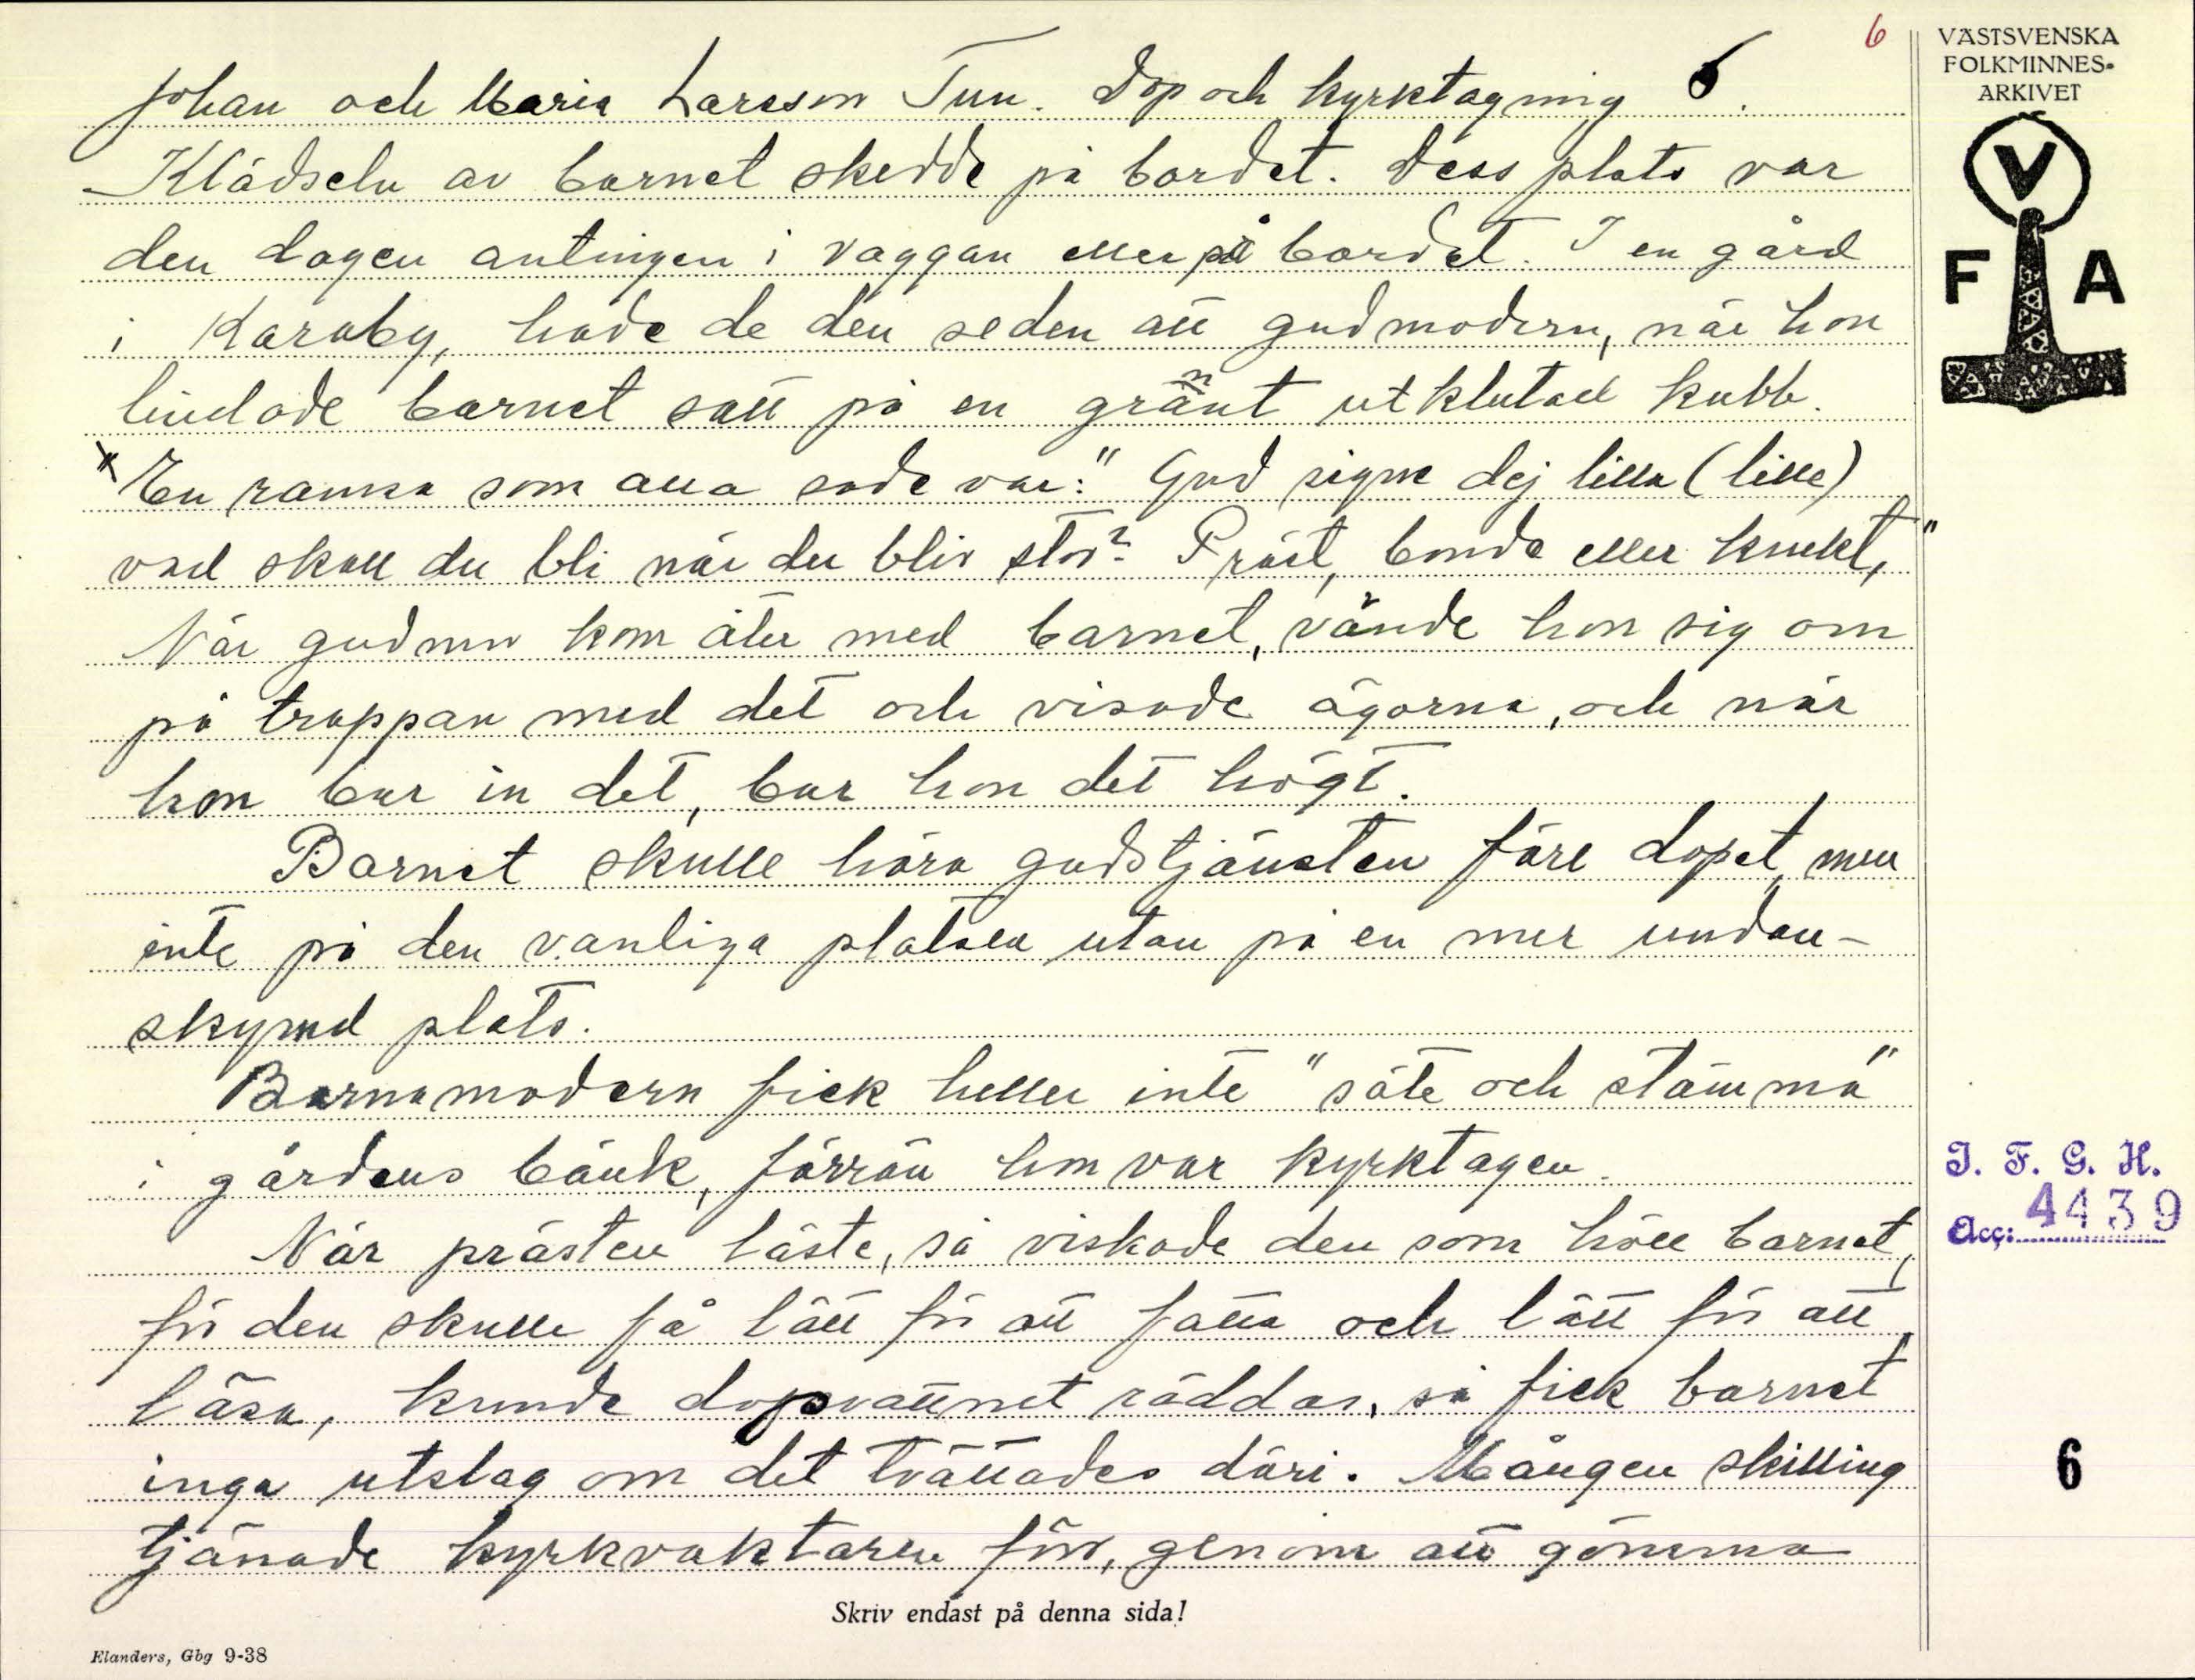 6
VÄSTSVENSKA
FOLKMINNES-
ARKIVET
V
F A
Johan och Maria Larsson Tun. Dop och kyrktagning 6.
Klädseln av barnet skedde på bordet. Dess plats var
den dagen antingen i vaggan eller på bordet. I en gård
i Karaby, hade de den seden att gudmodern, när hon
lindade barnet satt på en grant utklutad kubb.
"En ramsa som alla sade var: "Gud signe dej lilla (lille)
vad skall du bli när du blir stor? Präst, bonde eller knekt,"
När gudmor kom åter med barnet, vände hon sig om
på trappan med det och visade ägorna, och när
hon bar in det, bar hon det högt.
Barnet skulle höra gudstjänsten före dopet, men
inte på den vanliga platsen utan på en mer undan-
skymd plats.
Barnamodern fick heller inte "säte och stämma"
i gårdens bänk, förrän hon var kyrktagen.
När prästen läste, så viskade den som höll barnet,
för den skulle få lätt för att fatta och lätt för att
läsa, kunde dopvattnet räddas, så fick barnet
inga utslag om det tvättades däri. Mången skilling
tjänade kyrkvaktaren förr, genom att gömma
J. F. G. H.
Acc: 4439
6
Skriv endast på denna sida!
Elanders, Gbg 9-38